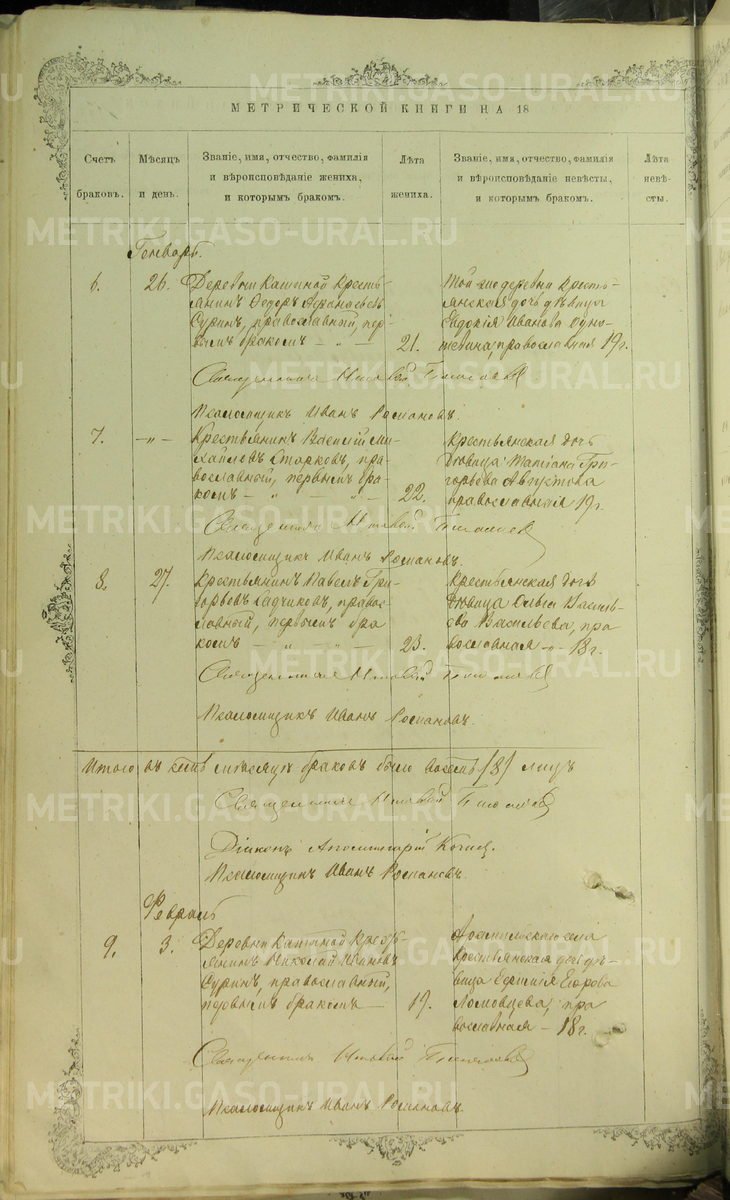 МЕТРИЧЕСКОЙ КНИГИ НА 18
Счетъ браковъ.
Мѣсяцъ и день.
Званіе, имя, отчество, фамилія и вѣроисповѣданіе жениха, и которымъ бракомъ.
Лѣта жениха.
Званіе, имя, отчество, фамилія и вѣроисповѣданіе невѣсты, и которымъ бракомъ.
Лѣта невѣсты.
Генварь.
6. 26. Деревни Кашиной кресть-
янинъ Ѳедоръ Аѳанасьевъ
Суринъ, православный, пер-
вымъ бракомъ — „ — 21.
Той же деревни кресть-
янская дочь дѣвица
Евдокія Иванова
православная 19 г.
Священникъ
Псаломщикъ Иванъ Романовъ.
7. — „ — Крестьянинъ Василій Ми-
хайловъ Старковъ, пра-
вославный, первымъ бра-
комъ — „ — „ — 22.
Крестьянская дочь
дѣвица Татіана Гри-
горьева Августова
православная 19 г.
Священникъ
Псаломщикъ Иванъ Романовъ.
8. 27. Крестьянинъ Павелъ Гри-
горьевъ, правос-
лавный, первымъ бра
комъ — „ — „ — 23.
Крестьянская дочь
дѣвица Ольга Василь-
ева Васильева, пра
вославная — „ — 18 г.
Священникъ
Псаломщикъ Иванъ Романовъ.
Итого въ семъ мѣсяцѣ браковъ было восемь /8/
Священникъ
Діаконъ
Псаломщикъ Иванъ Романовъ.
Февраль
9. 3. Деревни Кашиной кресть-
янинъ Николай Ивановъ
Суринъ, православный,
первымъ бракомъ — 19.
села
крестьянская дочь дѣ-
вица Егорова
Ломовцева, пра
вославная — 18 г.
Священникъ
Псаломщикъ Иванъ Романовъ.
METRIKI.GASO-URAL.RU